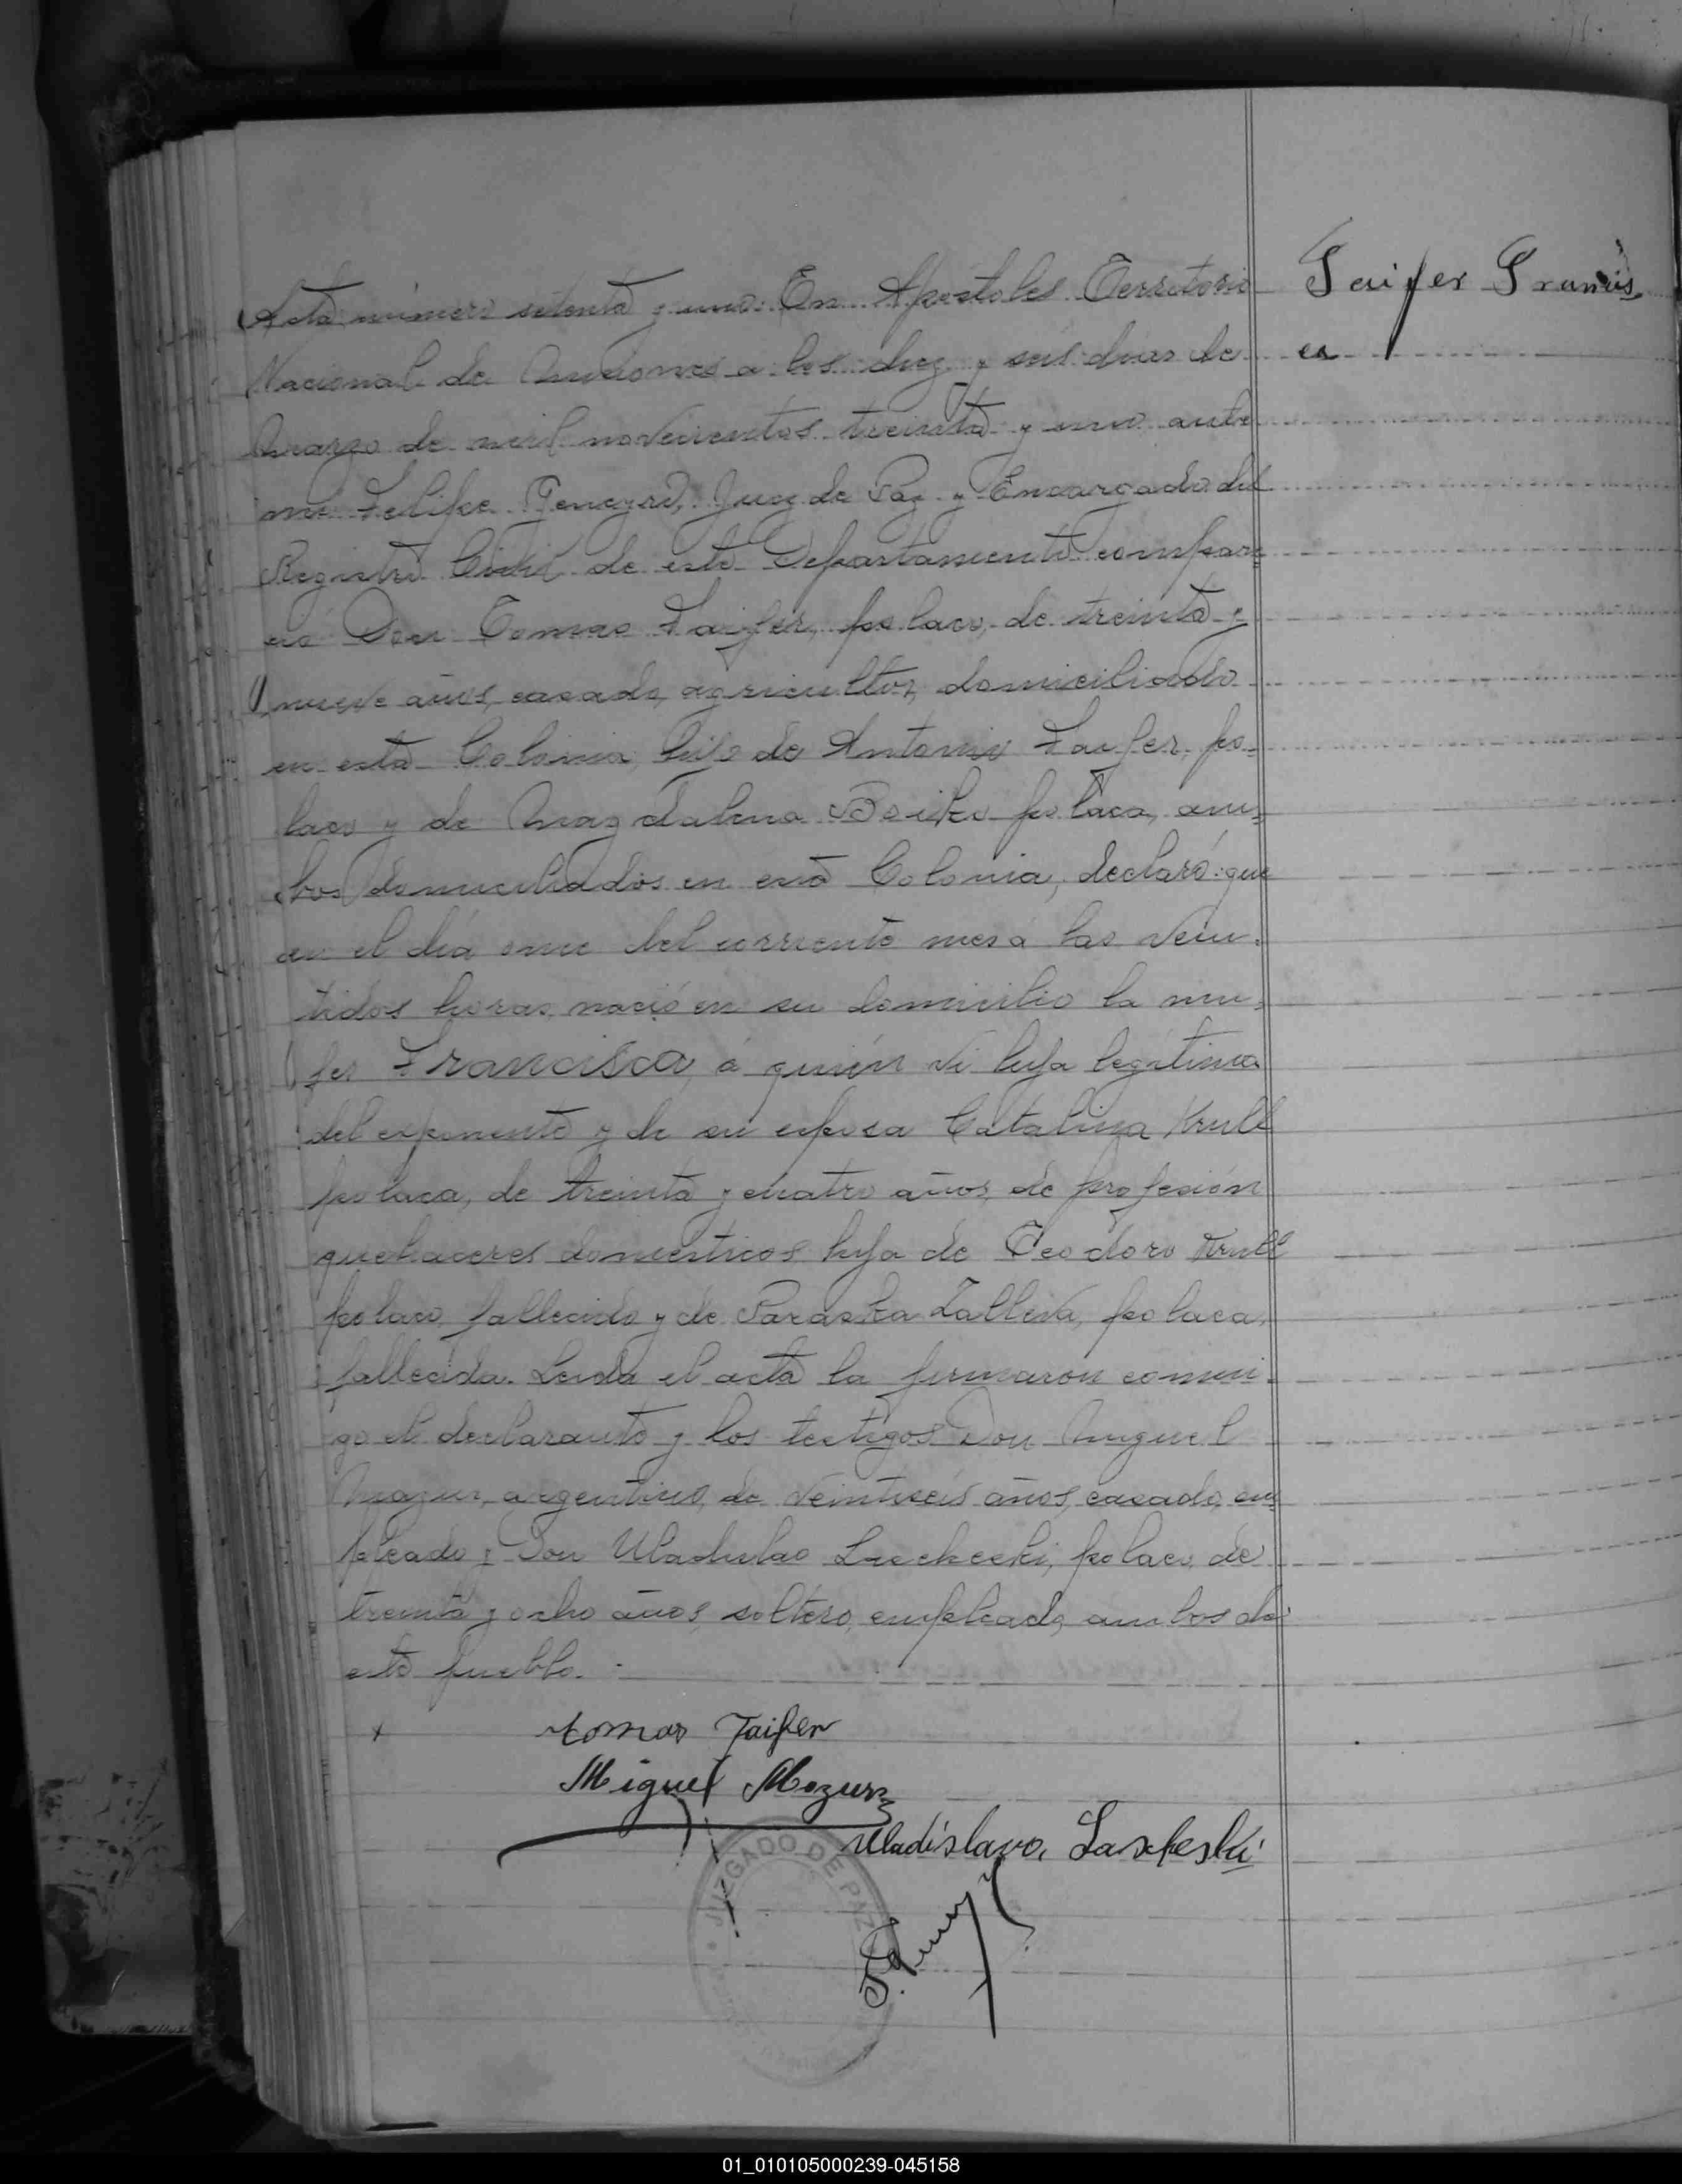 Faifer Francis
ca
Acta número setenta y uno: En Apóstoles Territorio
Nacional de Misiones a los diez y seis dias de
Marzo de mil novecientos treinta y uno ante
mi Felipe Juez de Paz y Encargado del
Registro Civil de este Departamento compare
ció Don Tomas Faifer, polaco, de treinta y
nueve años, casado, agricultor, domiciliado
en esta Colonia, hijo de Antonio Faifer, po-
laco y de Magdalena Boiko polaca, am-
bos domiciliados en esta Colonia, declaró: que
en el día once del corriente mes á las vein-
tidos horas, nació en su domicilio la mu-
jer Francisca, á quién ví hija legítima
del exponente y de su esposa Catalina Krull
polaca, de treinta y cuatro años, de profesión
quehaceres domesticos hija de Teodoro Krull
polaco, fallecido y de Paraska polaca,
fallecida. Leida el acta la firmaron conmi-
go el declarante y los testigos Don Miguel
Mazur, argentino, de veintiseis años, casado, em
pleado y Don Uladislao polaco, de
treinta y ocho años, soltero, empleado, ambos de
este pueblo.
x
tomas Faifer
Miguel Mazur
Uladislavo,
JUZGADO DE PAZ
01_010105000239-045158